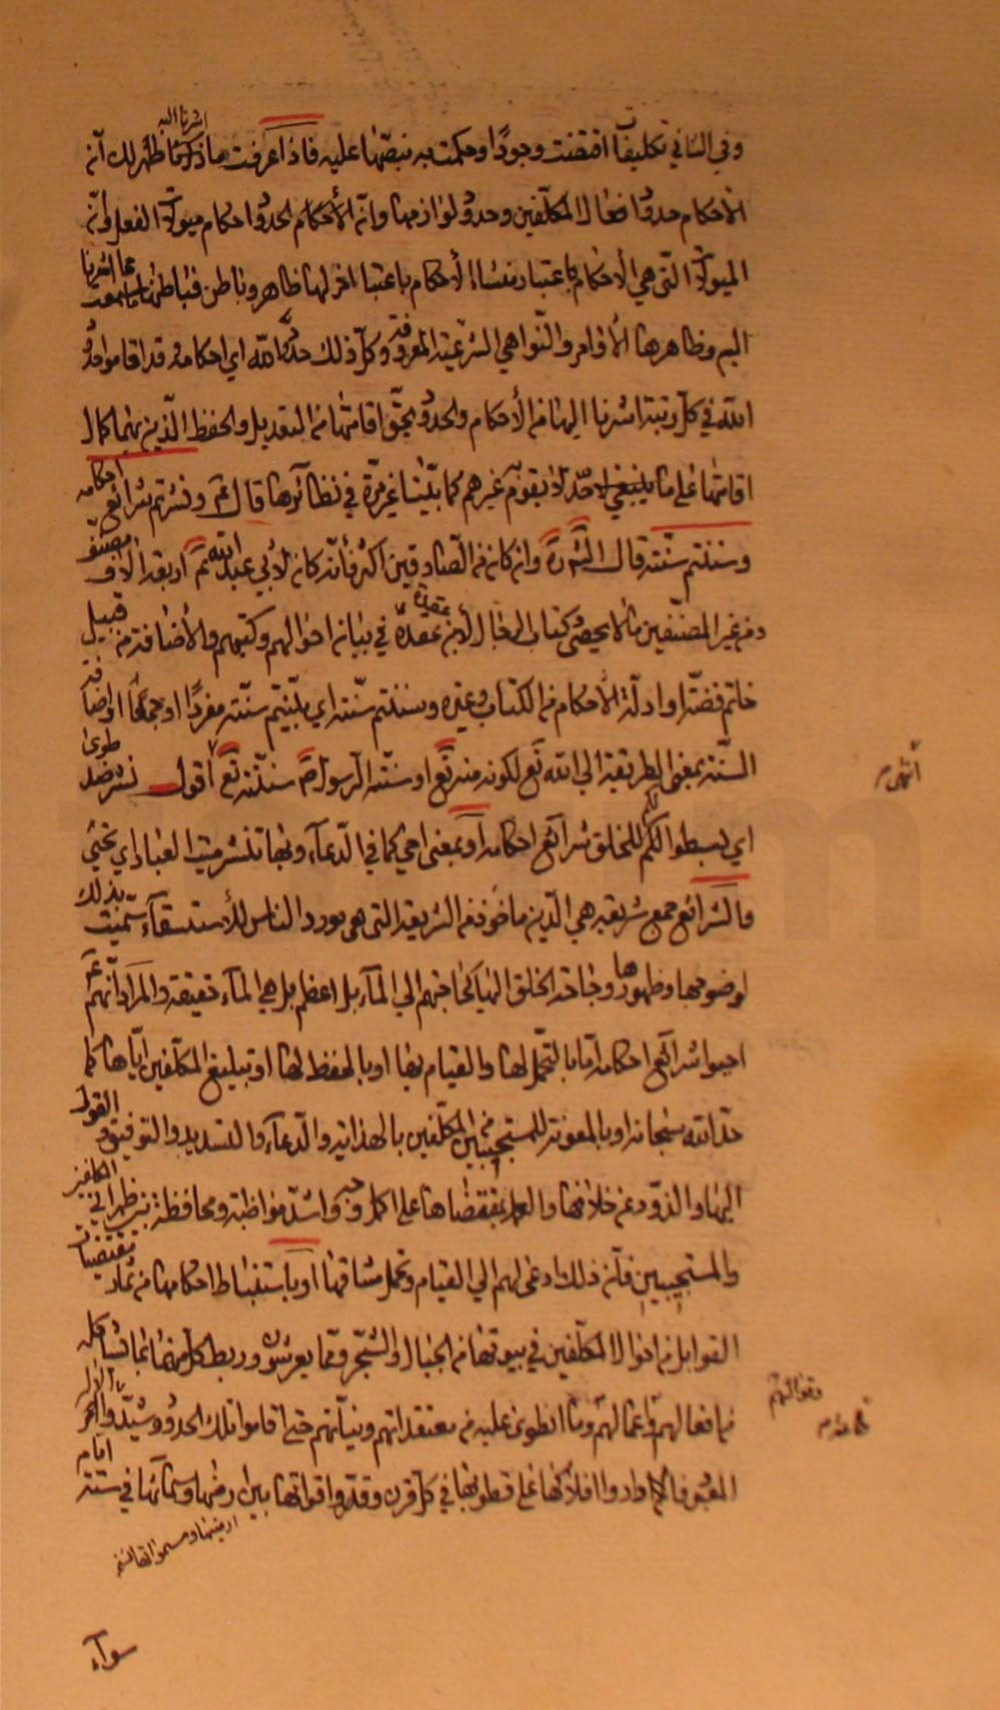 وفي الثاني تكليفاً اقتضت وجوداً وحكمت به نبّهنا عليه فاذا عرفت ما ذكرنا اشرنا اليه ظهر لك انّ
الاحكام حدود افعال المكلّفين وحدود لوازمها وانّ الأحكام الحدود احكام ميولات الفعل وانّ
الميولات التي هي الاحكام باعتبار منشاء الأحكام باعتبار اخر لها ظاهر وباطن فباطنها ما سمعت مما اشرنا
اليه وظاهرها الأوامر والنّواهي الشرعيّة المعروفة وكلّ ذلك حدود الله اي احكامه وقد اقاموا حدود
الله في كلّ رتبة اشرنا اليها من الأحكام والحدود بحقّ اقامتها من التعديل والحفظ الّذين بهما كمال
اقامتها على ما ينبغي لاحد لا يقوم غيرهم كما بيّنّا غير مرّة في نظآئرها قال ع ونشرتم شرائع احكامه
وسننتم سنّته قال الش ره وان كان من الصّادقين اكثر فأنّه كان لأبي عبد الله ع اربعة آلاف مصنّف
ومن غير المصنّفين ما لا يحصى كتاب الرجال لابن عقدة في بيان احوالهم وكتبهم والأضافة من قبيل
خاتم فضّة او ادلّة الأحكام من الكتاب وغيره وسننتم سنّته اي بيّنتم سنّته مفرداً او جمعاً او اضافة
السّنّة بمعنى الطريقة الى الله تع لكونه منه تع او سنّة الرّسول ص سنّته تع اقول نشر ضد طوى
اي بسطوا لكم للخلق شرآئع احكامه او بمعنى احيى كما في الدّعآء وبها تنشر ميت العباد اي تحيي
والشرائع جمع شريعة هي الدّين ماخوذ من الشريعة التي هي مورد الناس للأستسقآء سمّيت بذلك
لوضوحها وظهورها وحاجة الخلق اليها كحاجتهم الى المآء بل اعظم بل هي المآء حقيقة والمراد انّهم ع
احيوا شرآئع احكامه امّا بالتحمّل لها والقيام بها او بالحفظ لها او بتبليغ المكلّفين ايّاها كما
حدّ الله سبحانه او بالمعونة للمستجيبين من المكلّفين بالهداية والدّعآء والتسديد والتوفيق والقول
اليها والذّود عن خلافها والعمل بمقتضاها على اكمل وجه واشدّ مواظبة ومحافظة بين ظهراني الكافرين
والمستجيبين فانّ ذلك ادعى لهم الى القيام وتحمّل مشاقّها او باستنباط احكامها من ثمار مقتضيات
القوابل من احوال المكلّفين في بيوتها من الجبال والشجر وممّا يعرشون وربط كلّ منها بما شاكله
من افعالهم واعمالهم وما انطوى عليه من معتقداتهم ونيّاتهم حتى اقاموا تلك الحدود وشيّدوا
المقبوفالاول واداروا افلاكها على قطوبها في كلّ قرن وقدّروا اقواتها بين ارضها وسمائها في ستّة ايام
ارضيها وسمواتها
سوآء